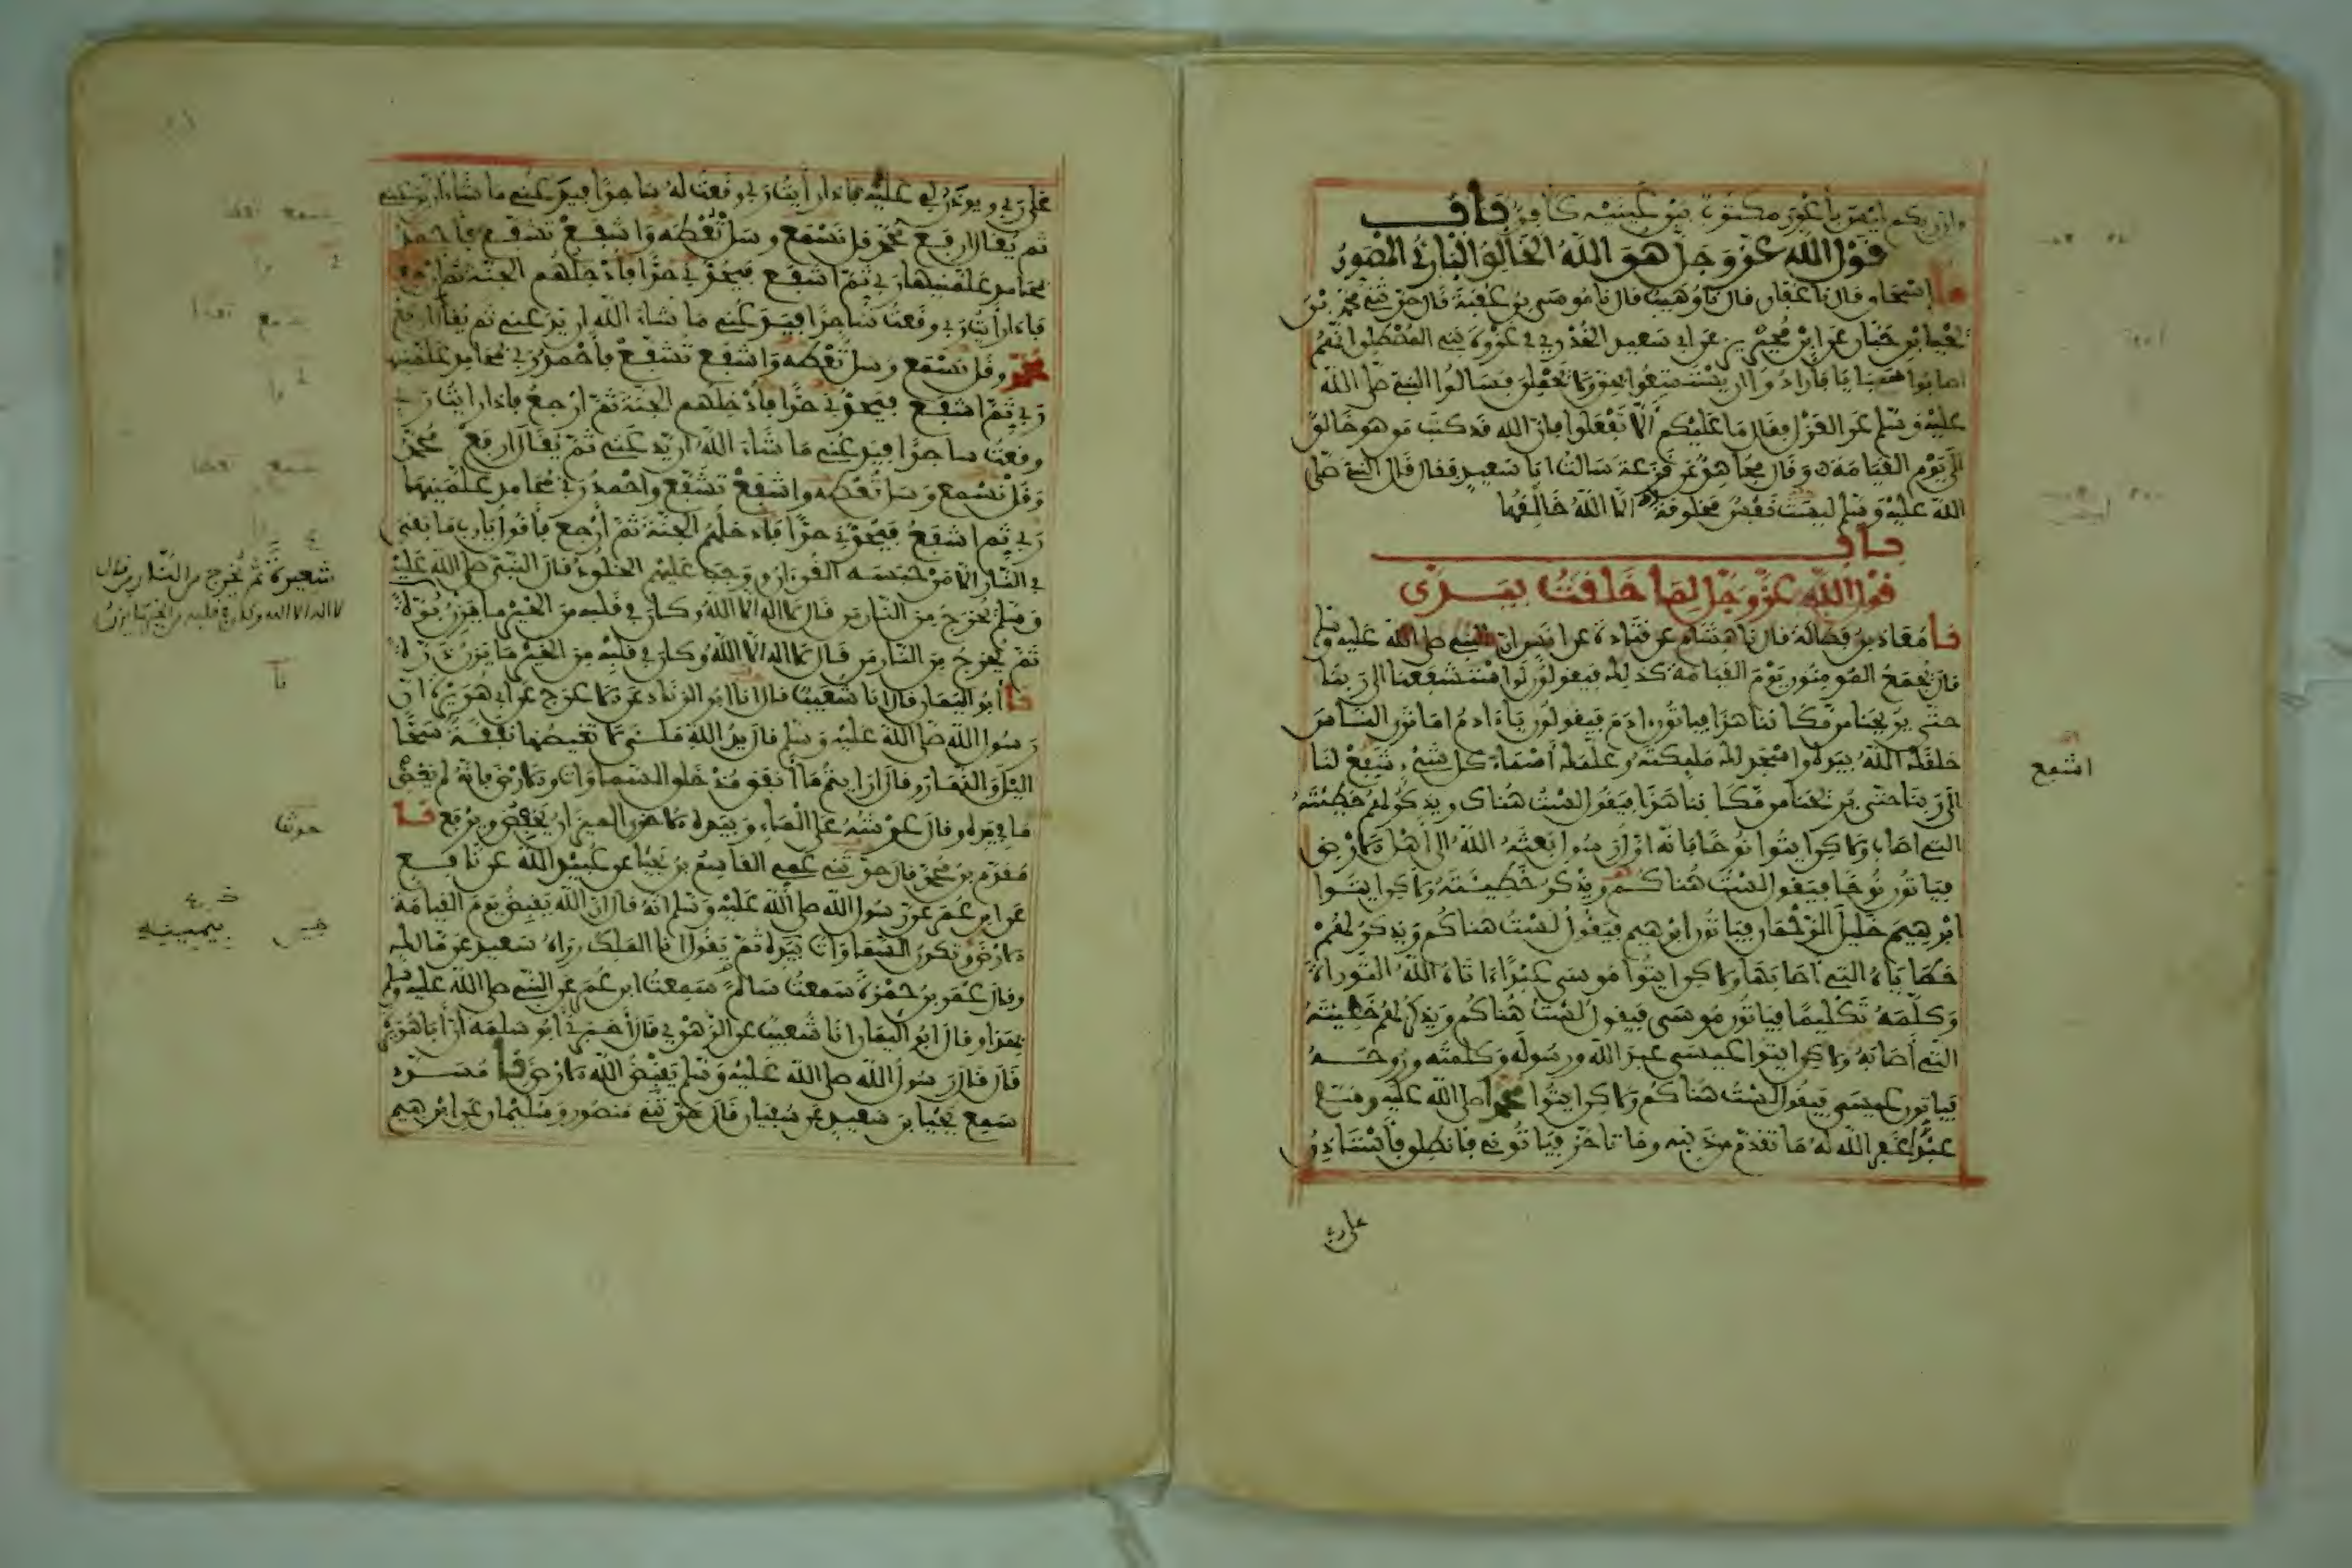 وإن ربكم ليس بأعور مكتوب بين عينيه كافر باب
قول الله عز وجل هو الله الخالق البارئ المصور
نا إسحاق قال نا عفان قال نا وهيب قال نا موسى بن عقبة قال حدثني محمد بن
يحيى بن حبان عن ابن محيريز عن أبي سعيد الخدري في غزوة بني المصطلق أنهم
أصابوا سبايا فأرادوا أن يستمتعوا بهن ولا يحملن فسألوا النبي صلى الله
عليه وسلم عن العزل فقال ما عليكم ألا تفعلوا فإن الله قد كتب من هو خالق
إلى يوم القيامة وقال مجاهد عن قزعة سألت أبا سعيد فقال قال النبي صلى
الله عليه وسلم ليست نفس مخلوقة إلا الله خالقها
باب
قول الله عز وجل لما خلقت بيدي
نا معاذ بن فضالة قال نا هشام عن قتادة عن أنس أن النبي صلى الله عليه وسلم
قال يجمع المؤمنون يوم القيامة كذلك فيقولون لو استشفعنا إلى ربنا
حتى يريحنا من مكاننا هذا فيأتون آدم فيقولون يا آدم أما ترى الناس
خلقك الله بيده وأسجد لك ملائكته وعلمك أسماء كل شيء شفع لنا
إلى ربنا حتى يريحنا من مكاننا هذا فيقول لست هناك ويذكر لهم خطيئته
التي أصاب ولكن ايتوا نوحا فإنه أول رسول بعثه الله إلى أهل الأرض
فيأتون نوحا فيقول لست هناكم ويذكر خطيئته ولكن ايتوا
إبرهيم خليل الرحمن فيأتون إبرهيم فيقول لست هناكم ويذكر لهم
خطاياه التي أصابها ولكن ايتوا موسى عبدا آتاه الله التوراة
وكلمه تكليما فيأتون موسى فيقول لست هناكم ويذكر لهم خطيئته
التي أصابه ولكن ايتوا عيسى عبد الله ورسوله وكلمته وروحه
فيأتون عيسى فيقول لست هناكم ولكن ايتوا محمدا صلى الله عليه وسلم
عبدا غفر الله له ما تقدم من ذنبه وما تأخر فيأتوني فأنطلق فأستأذن
على ربي
اشفع
على ربي ويؤذن لي عليه فإذا رأيت ربي وقعت له ساجدا فيدعني ما شاء أن يدعني
ثم يقال ارفع محمد قل تسمع وسل تعطه واشفع تشفع فأحمد
بمحامد علمنيها ربي ثم اشفع فيحد لي حدا فأدخلهم الجنة ثم أرجع
فإذا رأيت ربي وقعت ساجدا فيدعني ما شاء الله أن يدعني ثم يقال ارفع
محمد وقل تسمع وسل تعطه واشفع تشفع فأحمد ربي بمحامد علمنيها
ربي ثم اشفع فيحد لي حدا فأدخلهم الجنة ثم أرجع فإذا رأيت ربي
وقعت ساجدا فيدعني ما شاء الله أن يدعني ثم يقال ارفع محمد
وقل تسمع وسل تعطه واشفع تشفع وأحمد ربي بمحامد علمنيها
ربي ثم اشفع فيحد لي حدا فأدخلهم الجنة ثم أرجع فأقول يا رب ما بقي
في النار إلا من حبسه القرءان ووجب عليهم الخلود قال النبي صلى الله عليه
وسلم يخرج من النار من قال لا إله إلا الله وكان في قلبه من الخير ما يزن برة
ثم يخرج من النار من قال لا إله إلا الله وكان في قلبه من الخير ما يزن ذرة
نا أبو اليمان قال أنا شعيب قال أنا أبو الزناد عن الأعرج عن أبي هريرة أن
رسول الله صلى الله عليه وسلم قال يد الله ملأى لا تغيضها نفقة سحا
الليل والنهار وقال أرأيتم ما أنفق منذ خلق السماوات والأرض فإنه لم يغض
ما في يده وقال عرشه على الماء وبيده الأخرى الميزان يخفض ويرفع نا
مقدم بن محمد قال حدثني عمي القاسم بن يحيى عن عبيد الله عن نافع
عن ابن عمر عن رسول الله صلى الله عليه وسلم أنه قال إن الله يقبض يوم القيامة
الأرض وتكون السماوات بيده ثم يقول أنا الملك رواه سعيد عن مالك
وقال عمر بن حمزة سمعت سالم سمعت ابن عمر عن النبي صلى الله عليه وسلم
بهذا وقال أبو اليمان أنا شعيب عن الزهري قال أخبرني أبو سلمة أن أبا هريرة
قال قال رسول الله صلى الله عليه وسلم يقبض الله الأرض نا مسدد
سمع يحيى بن سعيد عن سفيان قال حدثني منصور وسليمان عن إبرهيم
شعيرة ثم يخرج من النار من قال
لا إله إلا الله وكان في قلبه من الخير ما يزن
نا
حدثنا
بيمينه